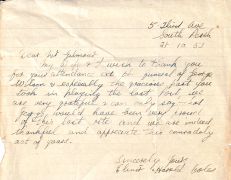 5 Third Ave
South Perth
21.10.53
Dear Mr
My & I wish to thank you
for your attendance at funeral of George
Wilson & especially the gracious part you
took in playing the last. We
are very grateful & can only say
would have been very proud
of the last rite and we are indeed
thankful and appreciate this comradely
act of yours.
Sincerely yours